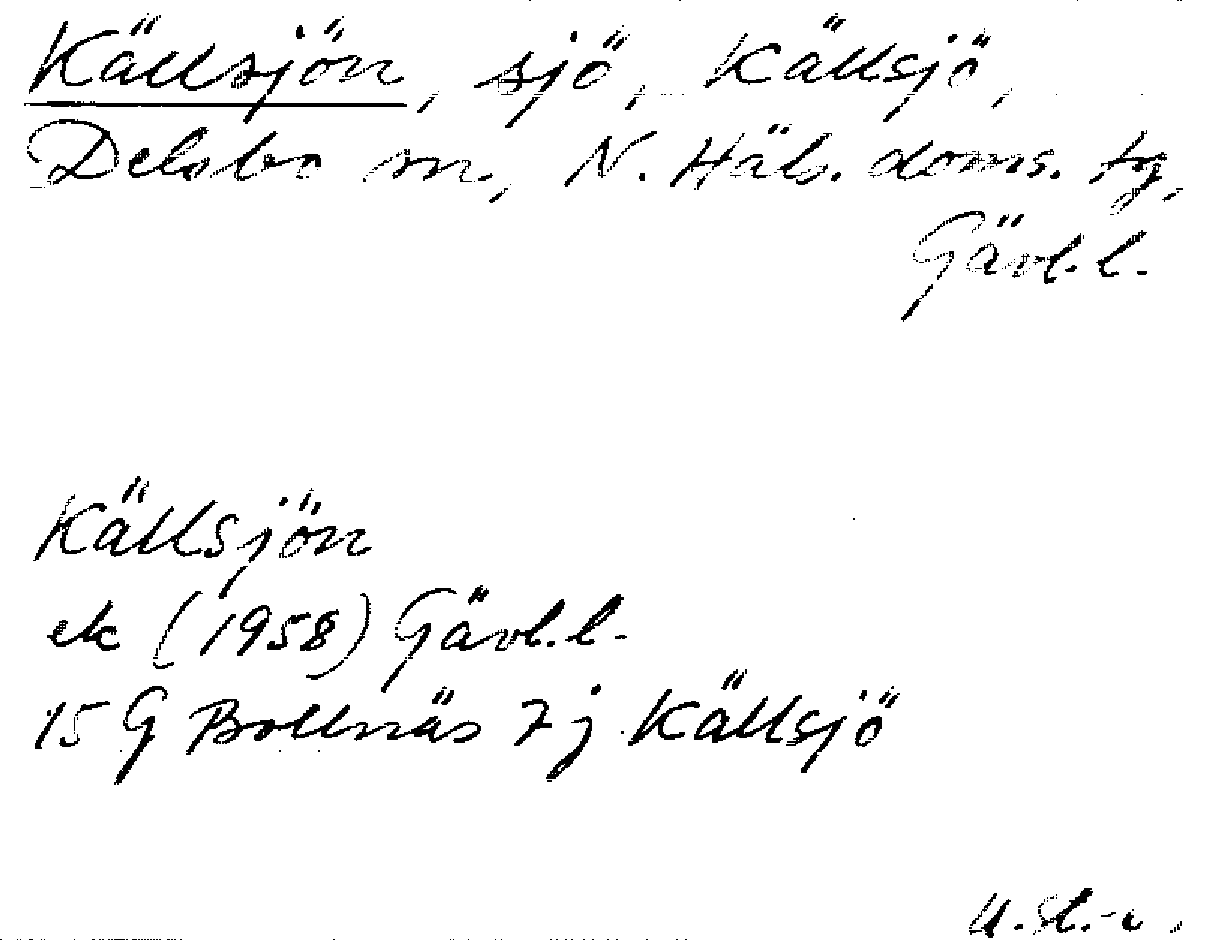 Källsjön, sjö, Källsjö,
Delsbo sn., N. Häls. doms. tg,
Gävl. l.
Källsjön
ek (1958) Gävl. l.
15 G Bollnäs 7 j Källsjö